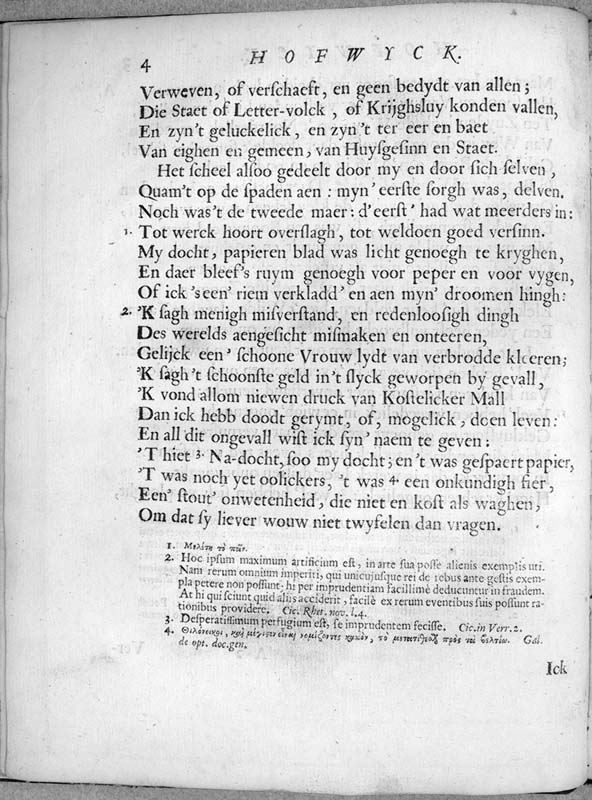 4 HOFWYCK.
Verweven, of verſchaeft, en geen bedydt van allen;
Die Staet of Letter-volck, of Krijghsluy konden vallen,
En zyn't geluckelick, en zyn't ter eer en baet
Van eighen en gemeen, van Huyſgeſinn en Staet.
Het ſcheel alſoo gedeelt door my en door ſich ſelven,
Quam't op de ſpaden aen: myn' eerſte ſorgh was, delven.
Noch was't de tweede maer: d'eerſt' had wat meerders in:
1. Tot werck hoort overſlagh, tot weldoen goed verſinn.
My docht, papieren blad was licht genoegh te kryghen,
En daer bleef's ruym genoegh voor peper en voor vygen,
Of ick 's een' riem verkladd' en aen myn' droomen hingh:
2. 'K ſagh menigh miſverſtand, en redenlooſigh dingh
Des werelds aengeſicht miſmaken en onteeren,
Gelijck een' ſchoone Vrouw lydt van verbrodde kleeren;
'K ſagh't ſchoonſte geld in't ſlyck geworpen by gevall,
'K vond allom niewen druck van Koſtelicker Mall
Dan ick hebb doodt gerymt, of, mogelick, doen leven:
En all dit ongevall wiſt ick ſyn' naem te geven:
'T hiet 3. Na-docht, ſoo my docht; en 't was geſpaert papier,
'T was noch yet oolickers, 't was 4. een onkundigh fier,
Een' ſtout' onwetenheid, die niet en koſt als waghen,
Om dat ſy liever wouw niet twyfelen dan vragen.
1. Μελέτη τὸ πᾶν.
2. Hoc ipſum maximum artificium eſt, in arte ſua poſſe alienis exemplis uti.
Nam rerum omnium imperiti, qui unicujuſque rei de rebus ante geſtis exem-
pla petere non poſſunt, hi per imprudentiam facillimè deducuntur in fraudem.
At hi qui ſciunt quid aliis acciderit, facilè ex rerum eventibus ſuis poſſunt ra-
tionibus providere. Cic. Rhet. nov. l. 4.
3. Deſperatiſſimum perfugium eſt, ſe imprudentem feciſſe. Cic. in Verr. 2.
4. Φιλόνεικοι, καὶ μέγιστον εἶναι νομίζοντες κακὸν, τὸ μετατίθεσθαι πρὸς τὸ βέλτιον. Gal.
de opt. doc. gen.
Ick